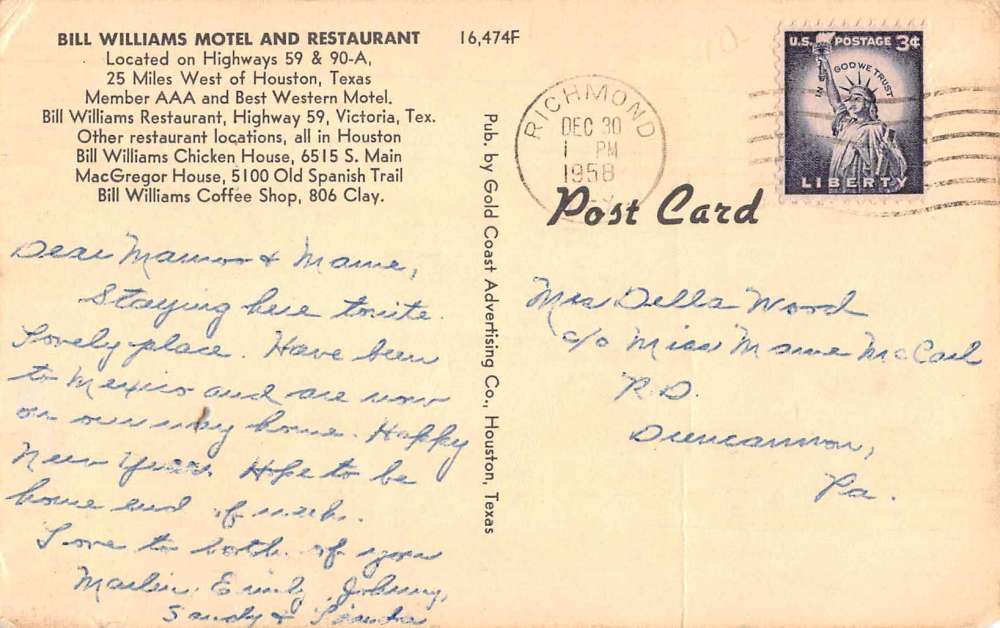 BILL WILLIAMS MOTEL AND RESTAURANT
Located on Highways 59 & 90-A,
25 Miles West of Houston, Texas
Member AAA and Best Western Motel.
Bill Williams Restaurant, Highway 59, Victoria, Tex.
Other restaurant locations, all in Houston
Bill Williams Chicken House, 6515 S. Main
MacGregor House, 5100 Old Spanish Trail
Bill Williams Coffee Shop, 806 Clay.
16,474F
Dear & Mame,
Staying here tonite.
Lovely place. Have been
to Mexico and are now
on our way home. Happy
New Year. Hope to be
home end of week.
Love to both of you
Emily, Johnny,
Sandy &
Pub. by Gold Coast Advertising Co., Houston, Texas
RICHMOND
DEC 30
1 PM
1958
U.S. POSTAGE 3¢
IN GOD WE TRUST
LIBERTY
Post Card
Mrs Della Wood
c/o Miss Mame McCarl
R.D.
Duncannon,
Pa.